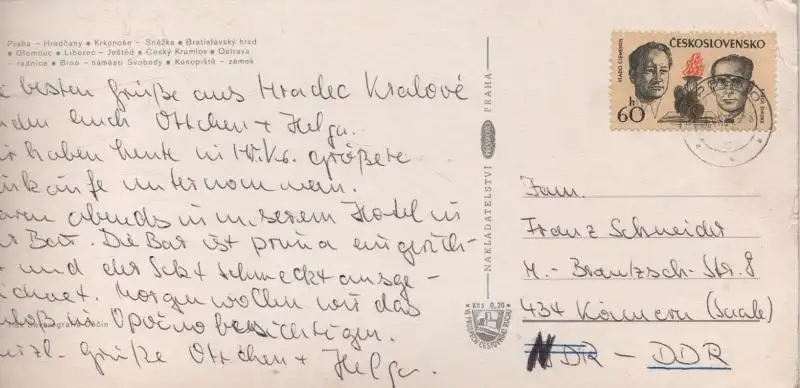 Praha – Hradčany • Krkonoše – Sněžka • Bratislavský hrad
• Olomouc • Liberec – Ještěd • Český Krumlov • Ostrava
– radnice • Brno – náměstí Svobody • Konopiště – zámek
e besten Grüße aus Hradec Kralové
nden euch Ottchen + Helga.
ir haben heute in H.Kr. größere
inkäufe unternommen.
aren abends in unserem Hotel in
er Bar. Die Bar ist prima eingerich-
t und der Sekt schmeckt ausge-
ichnet. Morgen wollen wir das
hloß in Opočno besichtigen.
erzl. Grüße Ottchen + Helga.
NAKLADATELSTVÍ PRESSFOTO PRAHA
Kčs 0,20
VE PROSPĚCH CESTOVNÍHO RUCHU
ČESKOSLOVENSKO
VLADO CLEMENTIS
h
60
Fam.
Franz Schneider
M.-Brautzsch-Str. 8
434 Könnern (Saale)
DDR – DDR